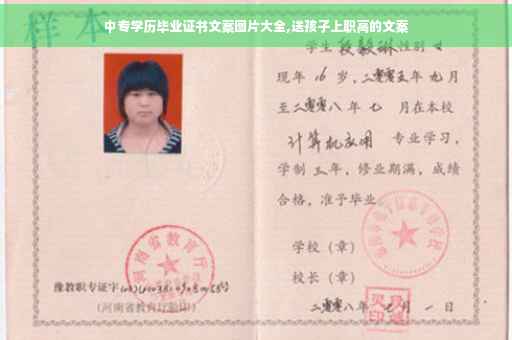 中专学历毕业证书文案图片大全,送孩子上职高的文案
样本
学生 段毅琳 性别 女
现年 16 岁,二零零五年 九月
至二零零八年 七 月在本校
计算机应用 专业学习,
学制 三 年,修业期满,成绩
合格,准予毕业
学校(章)
校长(章)
二零零八年 七月 一 日
河南省教育厅
豫教职专证字
(河南省教育厅验印)